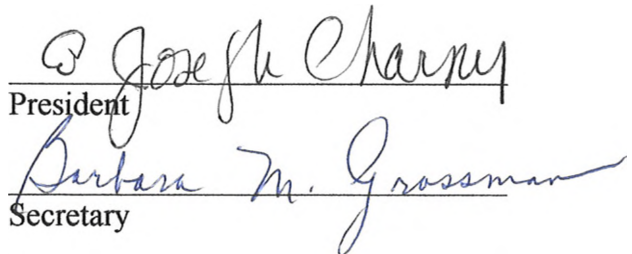 Joseph Charny
President
Barbara M. Grossman
Secretary